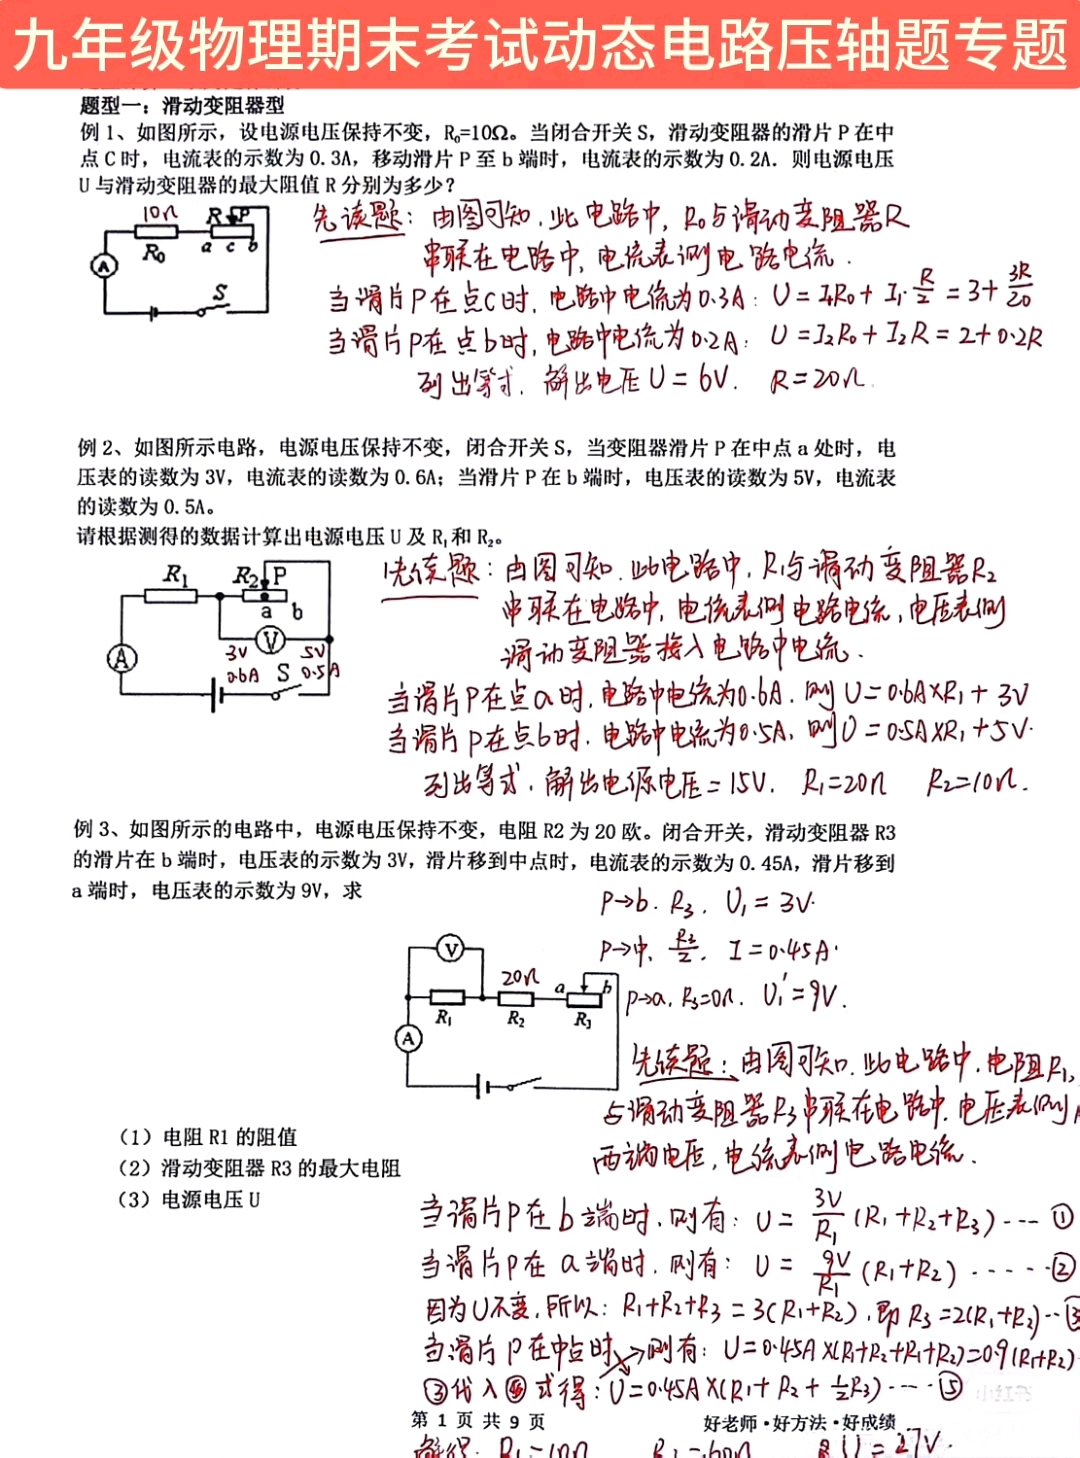 九年级物理期末考试动态电路压轴题专题
题型一：滑动变阻器型
例 1、如图所示，设电源电压保持不变，R₀=10Ω。当闭合开关 S，滑动变阻器的滑片 P 在中
点 C 时，电流表的示数为 0.3A，移动滑片 P 至 b 端时，电流表的示数为 0.2A．则电源电压
U 与滑动变阻器的最大阻值 R 分别为多少？
10Ω R P
R₀ a c b
A
S
先读题：由图可知，此电路中，R₀与滑动变阻器R
串联在电路中，电流表测电路电流．
当滑片P在点C时，电路中电流为0.3A：U=I₁R₀+I₁·R/2=3+3R/20
当滑片P在点b时，电路中电流为0.2A：U=I₂R₀+I₂R=2+0.2R
列出等式，解出电压U=6V．R=20Ω．
例 2、如图所示电路，电源电压保持不变，闭合开关 S，当变阻器滑片 P 在中点 a 处时，电
压表的读数为 3V，电流表的读数为 0.6A；当滑片 P 在 b 端时，电压表的读数为 5V，电流表
的读数为 0.5A。
请根据测得的数据计算出电源电压 U 及 R₁和 R₂。
R₁ R₂ P
a b
A V
3V 5V
0.6A S 0.5A
先读题：由图可知，此电路中，R₁与滑动变阻器R₂
串联在电路中，电流表测电路电流，电压表测
滑动变阻器接入电路中电流．
当滑片P在点a时，电路中电流为0.6A．则U=0.6A×R₁+3V
当滑片P在点b时，电路中电流为0.5A，则U=0.5A×R₁+5V．
列出等式，解出电源电压=15V．R₁=20Ω R₂=10Ω．
例 3、如图所示的电路中，电源电压保持不变，电阻 R2 为 20 欧。闭合开关，滑动变阻器 R3
的滑片在 b 端时，电压表的示数为 3V，滑片移到中点时，电流表的示数为 0.45A，滑片移到
a 端时，电压表的示数为 9V，求
P→b．R₃．U₁=3V．
P→中．R₃/2．I=0.45A．
P→a．R₃=0Ω．U₁'=9V．
V
20Ω a b
R₁ R₂ R₃
A
先读题：由图可知，此电路中，电阻R₁、
与滑动变阻器R₃串联在电路中，电压表测
两端电压，电流表测电路电流．
（1）电阻 R1 的阻值
（2）滑动变阻器 R3 的最大电阻
（3）电源电压 U
当滑片P在b端时，则有：U=3V/R₁(R₁+R₂+R₃)---①
当滑片P在a端时，则有：U=9V/R₁(R₁+R₂)-----②
因为U不变，所以：R₁+R₂+R₃=3(R₁+R₂)，即R₃=2(R₁+R₂)--③
当滑片P在中点时，则有：U=0.45A×(R₁+R₂+R₁+R₂)=0.9(R₁+R₂)
③代入式得：U=0.45A×(R₁+R₂+½R₃)---⑤
小红书
第 1 页 共 9 页 好老师·好方法·好成绩
解得：R₁=10Ω R₃=60Ω U=27V．